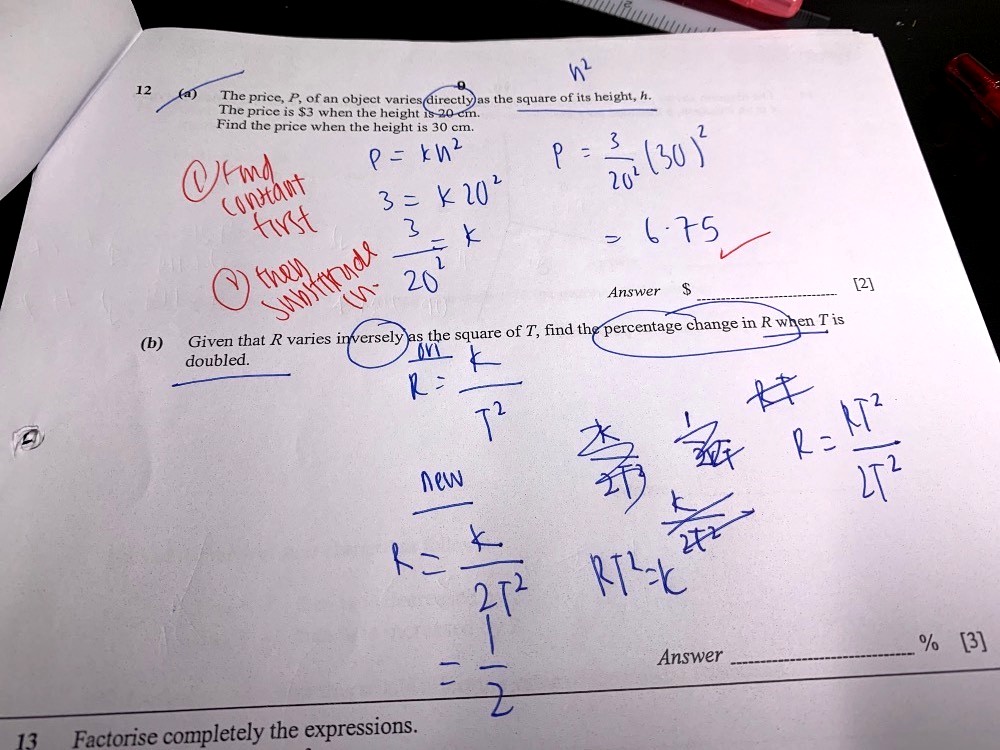 h²
12 (a) The price, P, of an object varies directly as the square of its height, h.
The price is $3 when the height is 20 cm.
Find the price when the height is 30 cm.
① Find
constant
first
P = kh²
3 = k 20²
3/20² = k
P = 3/20² (30)²
= 6.75
② then
substitude
in.
Answer $ [2]
(b) Given that R varies inversely as the square of T, find the percentage change in R when T is
doubled.
ori
R = k/T²
new
R = k/2T²
= 1/2
RT² = k
R = RT²/2T²
Answer % [3]
13 Factorise completely the expressions.